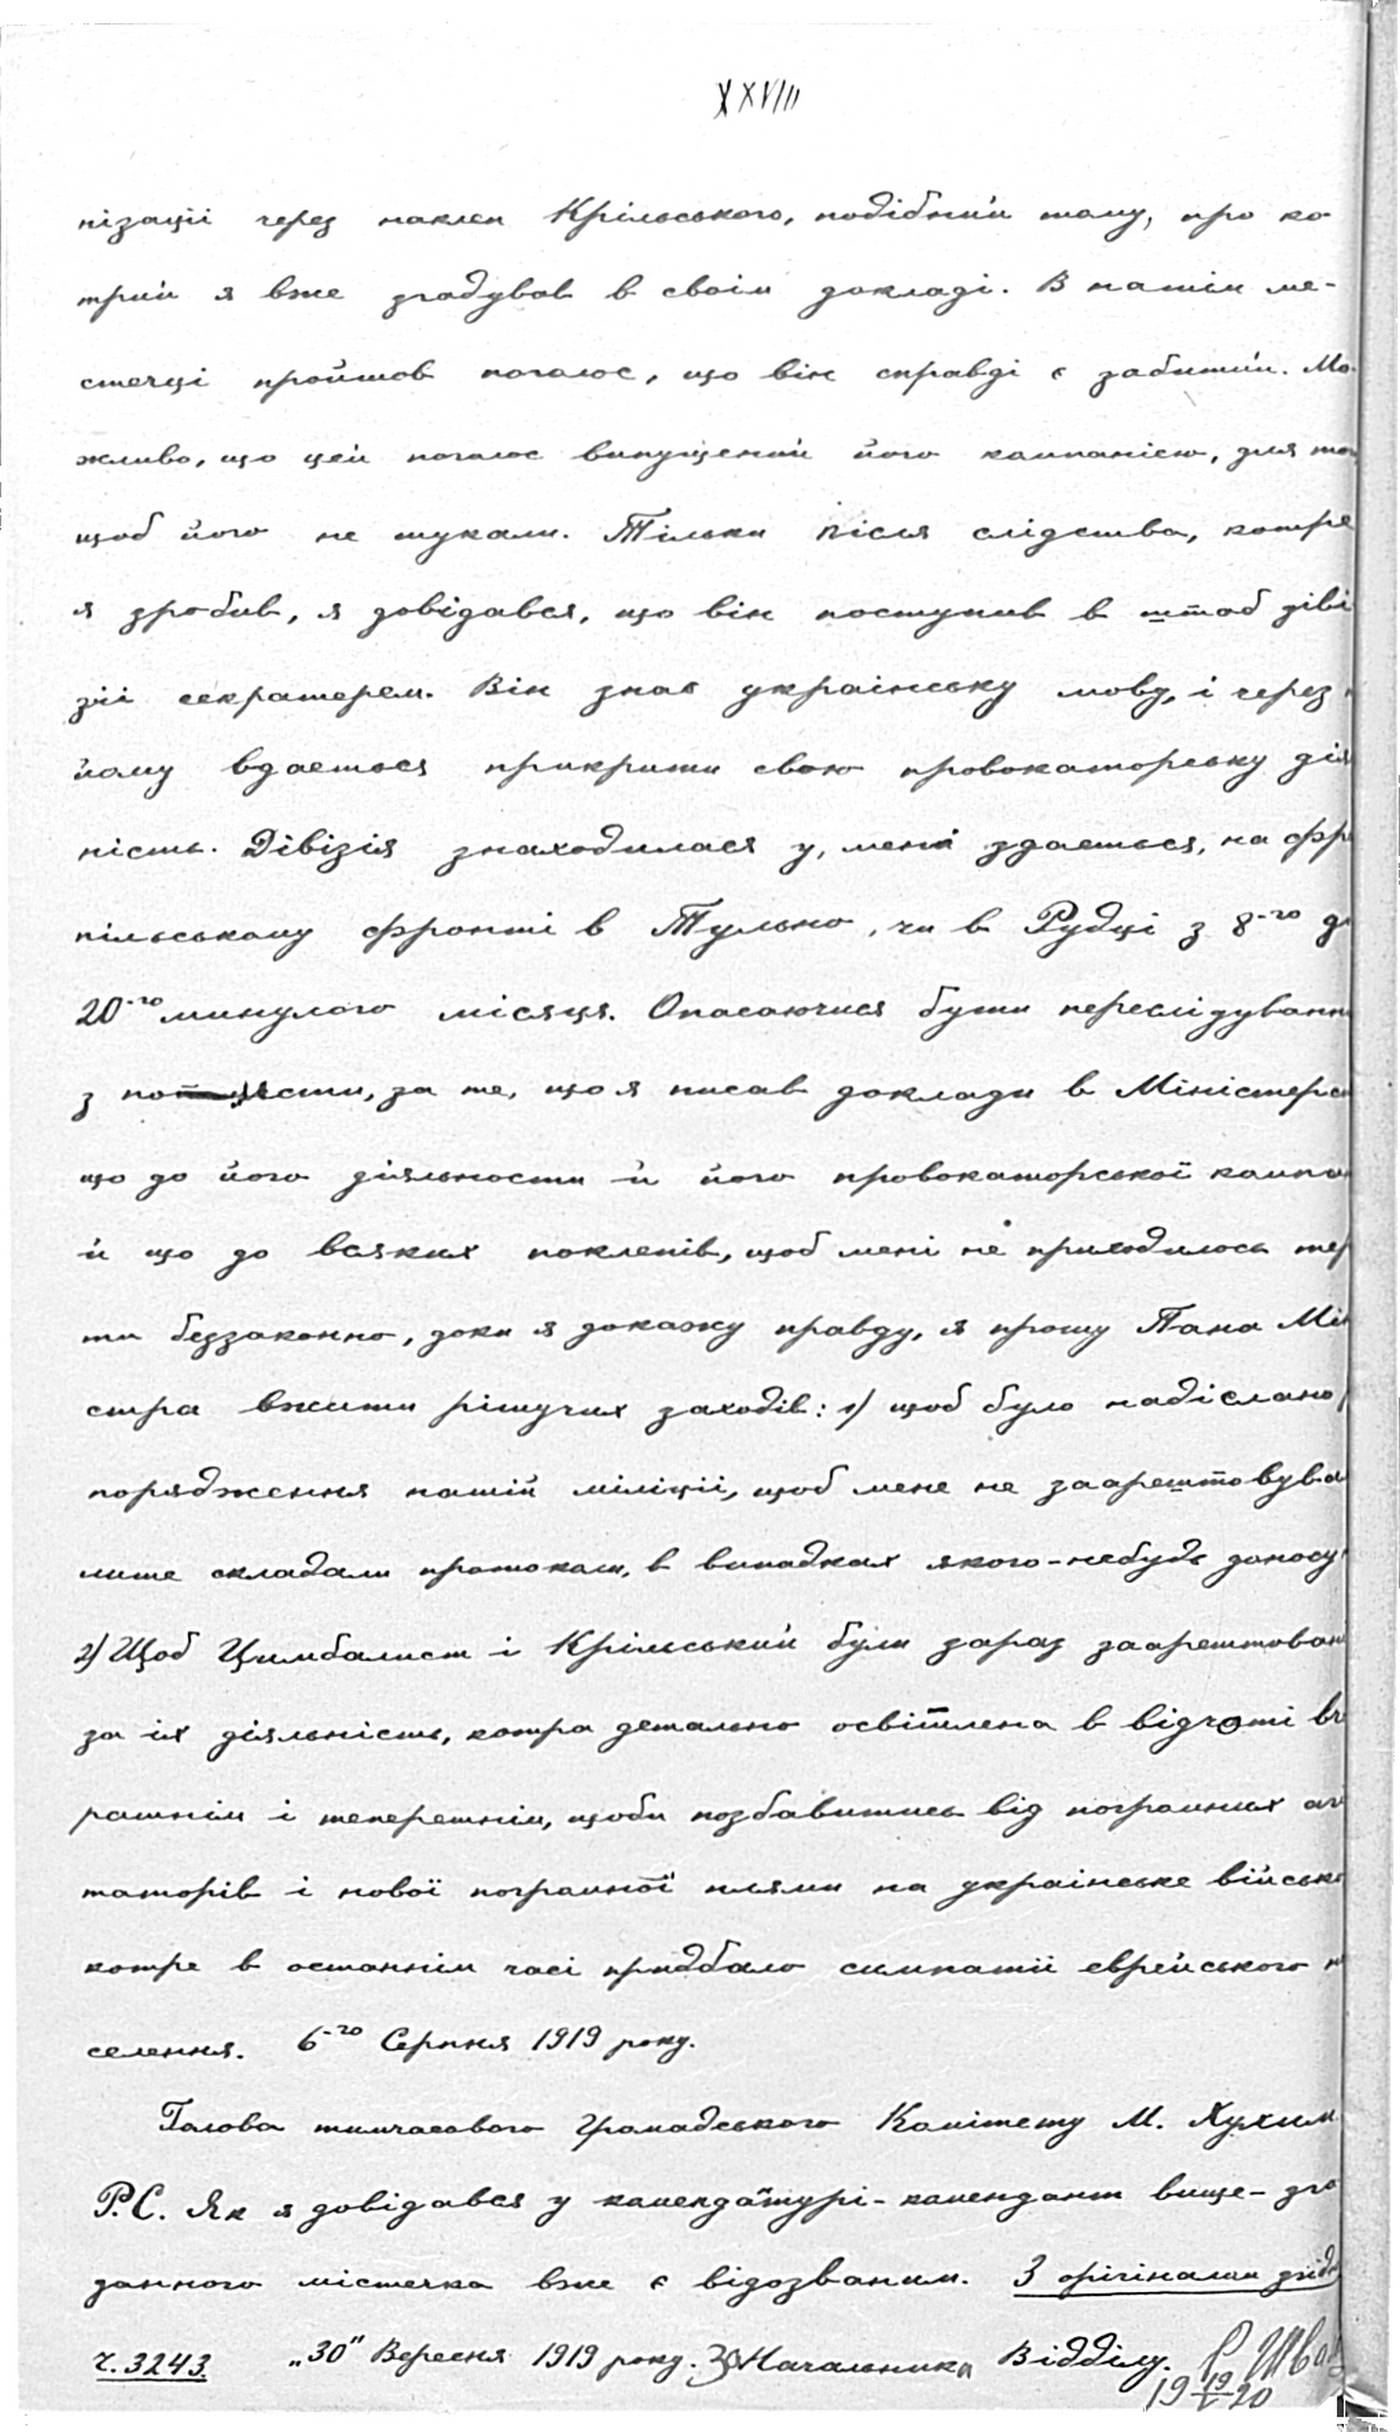 XXVIII
нізаціі через наклеп Крільського, подібний тому, про ко-
трий я вже згадував в своім докладі. В нашім ме-
стечці пройшов поголос, що він справді є забитий. Мо-
жливо, що цей поголос випущений його компанією, для
щоб його не шукали. Тільки після слідства, котре
я зробив, я довідався, що він поступив в штаб діві
зіі секратерем. Він знає українську мову, і через
йому вдається прикрити свою провокаторську дія
ність. Дівізія знаходилася у, мені здається, на
пільському фронті в Тульно, чи в Рудці з 8-го до
20-го минулого місяця. Опасаючися бути переслідуванн
з помсти, за те, що я писав доклади в Міністерс
що до його діяльности й його провокаторської компа
й що до всяких поклепів, щоб мені не приходилось тер
ти беззаконно, доки я докажу правду, я прошу Пана Мін
стра вжити рішучих заходів: 1) щоб було надіслано
порядження нашій міліціі, щоб мене не заарештовува
лише складали протокол, в випадках якого-небудь доносу
2) Щоб Цимбалист і Крільський були зараз заарештован
за іх діяльність, котра детально освітлена в відчоті вч
рашнім і теперешнім, щоби позбавитись від погромних агі
таторів і нової погромної плями на українське військо
котре в останнім часі придбало симпатіі еврейського н
селення. 6-го Серпня 1919 року.
Голова тимчасового Громадського Комітету М.
P.С. Як я довідався у комендатурі- комендант вище- зга
данного містечка вже є відозваним. З орігіналом згідн
ч. 3243. „30" Вересня 1919 року. За Начальника Відділу.
19 19/V 20